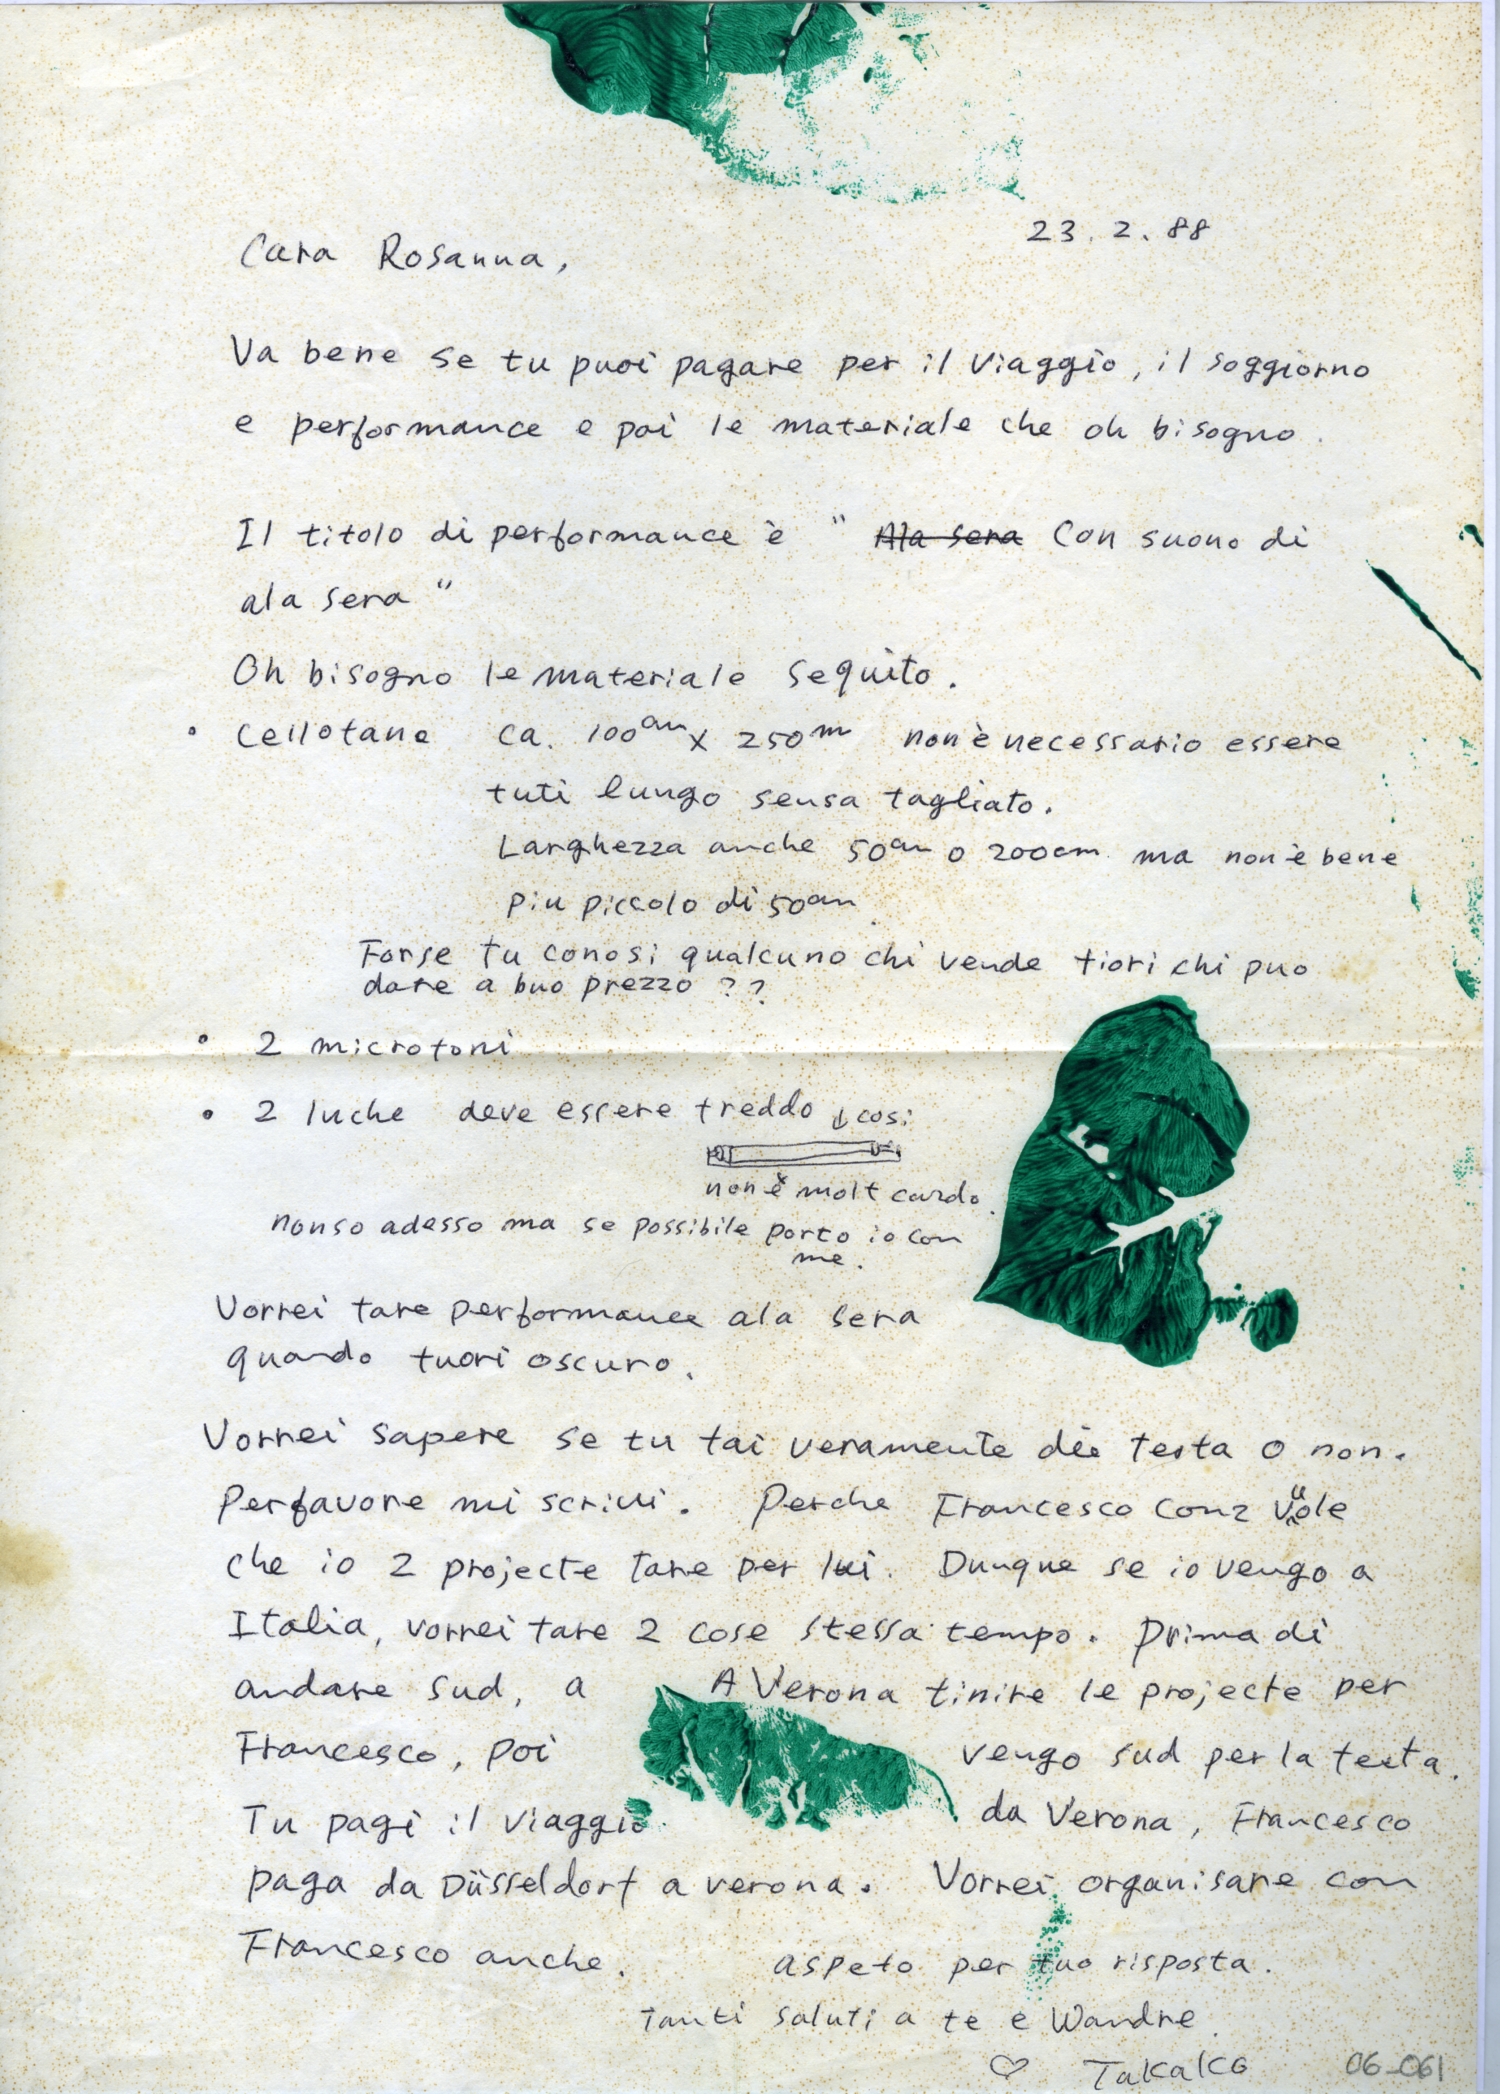 23. 2. 88
Cara Rosanna,
Va bene se tu puoi pagare per il viaggio, il soggiorno
e performance e poi le materiale che oh bisogno.
Il titolo di performance è " ~~Ala sera~~ Con suono di
ala sera "
Oh bisogno le materiale sequito.
• Cellofane ca. 100cm x 250m non è necessario essere
tuti lungo sensa tagliato.
Larghezza anche 50cm o 200cm ma non è bene
piu piccolo di 50cm
Forse tu conosi qualcuno chi vende fiori chi puo
dare a buo prezzo ??
• 2 microfoni
• 2 luche deve essere freddo ↓ cosi
non è molt cardo.
non so adesso ma se possibile porto io con
me.
Vorrei fare performance ala sera
quando fuori oscuro.
Vorrei sapere se tu fai veramente die festa o non.
Perfavore mi scrivi. Perche Francesco Conz vuole
che io 2 projecte fare per lui. Dunque se io vengo a
Italia, vorrei fare 2 cose stessa tempo. Prima di
andare sud, a A Verona finire le projecte per
Francesco, poi vengo sud per la festa.
Tu pagi il viaggio da Verona, Francesco
paga da Düsseldorf a verona. Vorrei organisare con
Francesco anche.
aspeto per tuo risposta.
Tanti saluti a te e Wandre.
♡ Takako
06_061